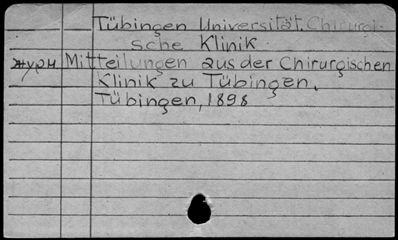 Tübingen Universität. Chirurgi-
sche Klinik.
журн Mitteilungen aus der Chirurgischen
Klinik zu Tübingen.
Tübingen, 1898